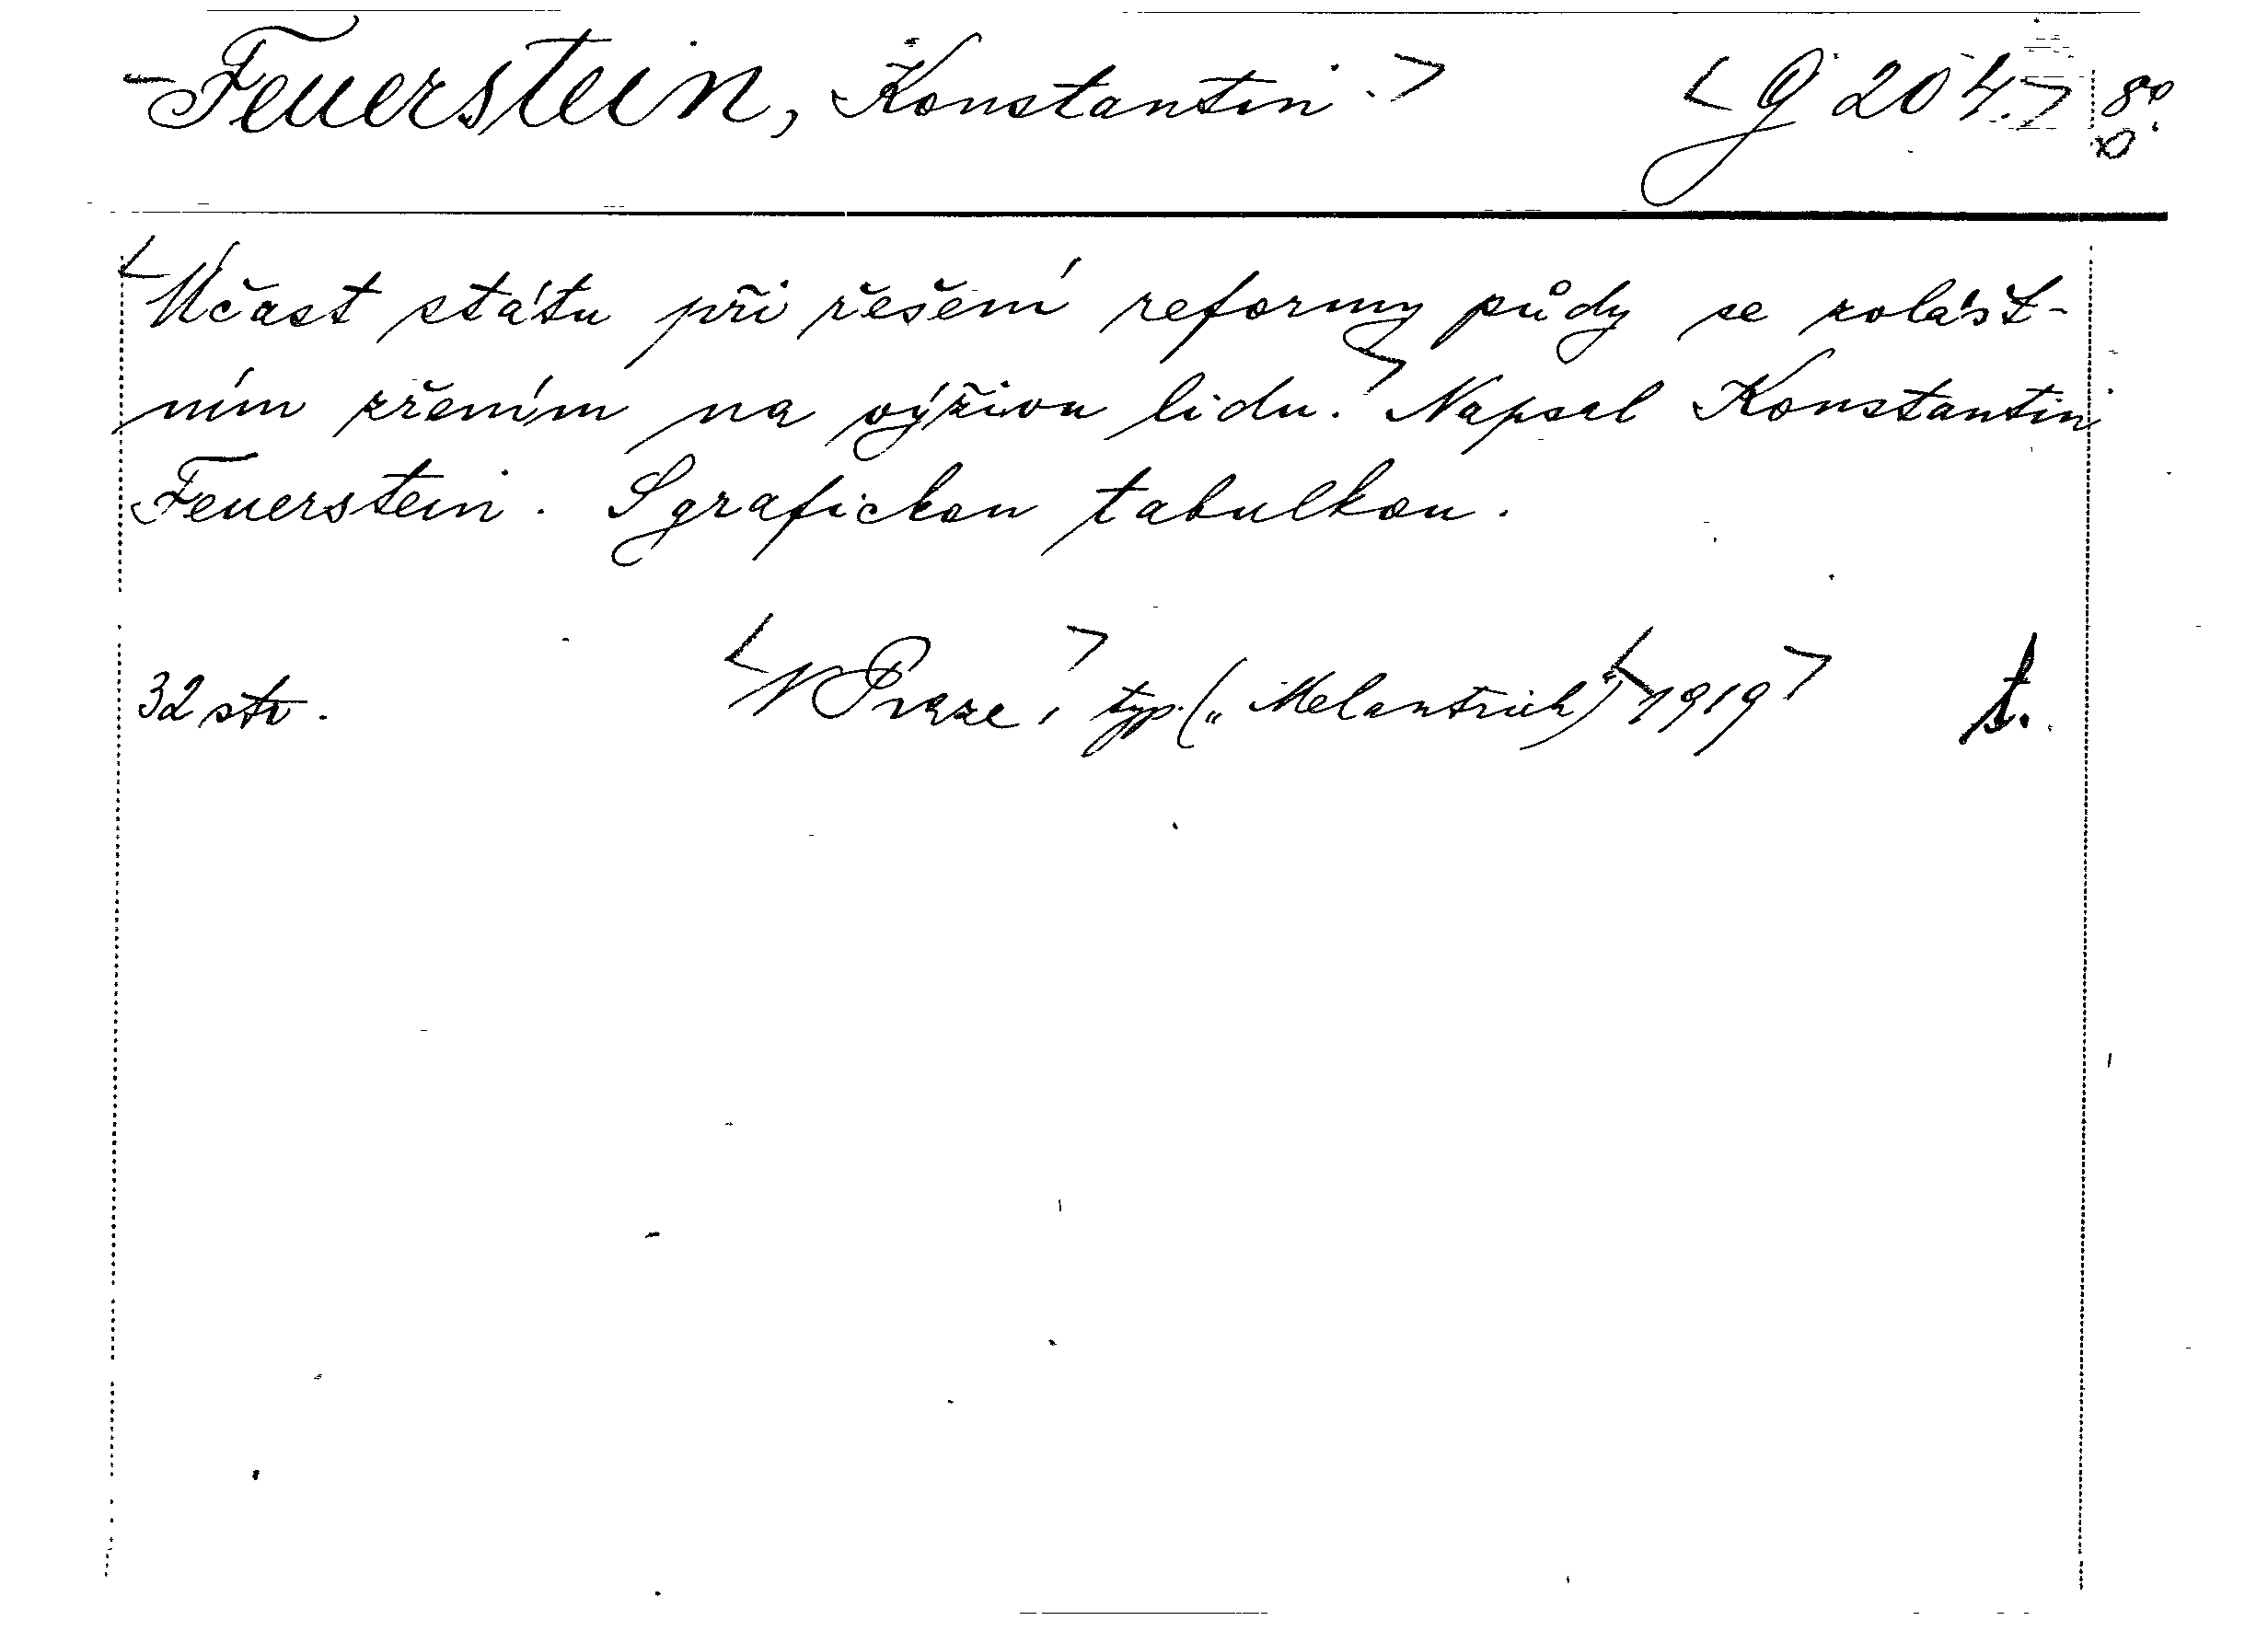 Feuerstein, Konstantin. <G 204.> 8°
<Účast státu při řešení reformy půdy se zvlášt-
ním zřením na výživu lidu.> Napsal Konstantin
Feuerstein. S grafickou tabulkou.
32 str. <V Praze,> typ. („Melantrich“) <1919> t.